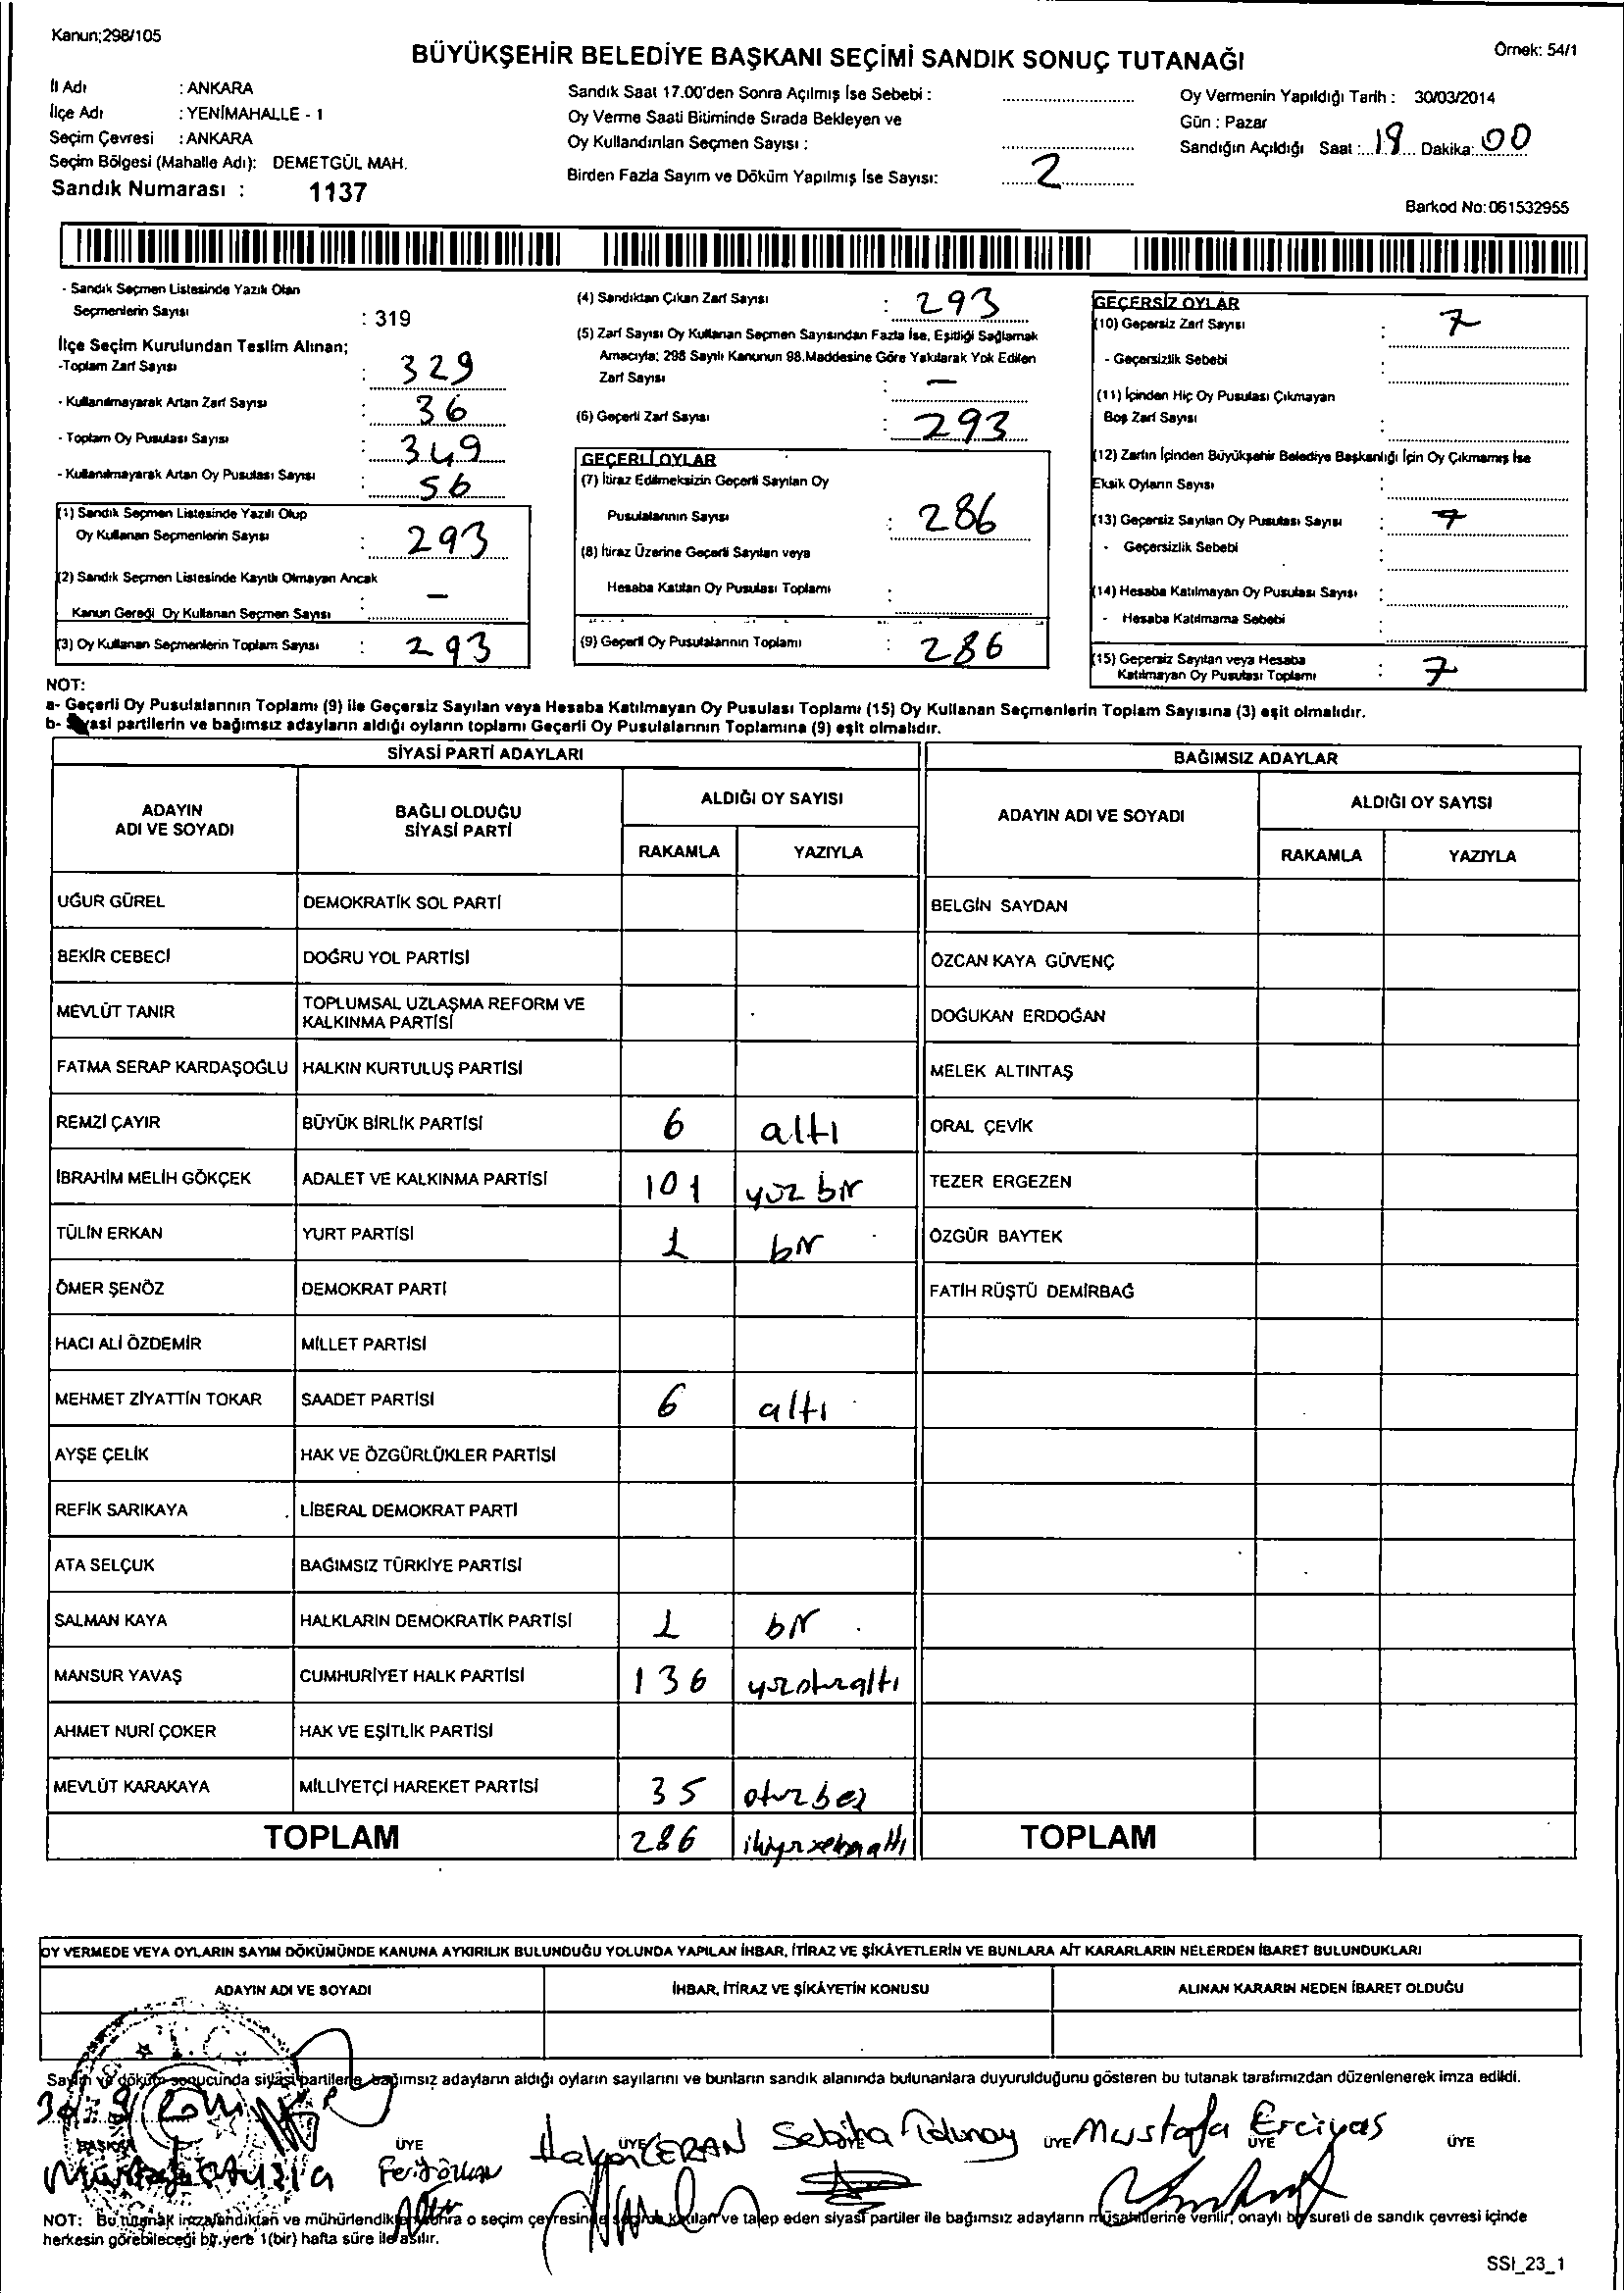 Kanun;298/105
Örnek: 54/1
BÜYÜKŞEHİR BELEDİYE BAŞKANI SEÇİMİ SANDIK SONUÇ TUTANAĞI
İl Adı : ANKARA
İlçe Adı : YENİMAHALLE - 1
Seçim Çevresi : ANKARA
Seçim Bölgesi (Mahalle Adı): DEMETGÜL MAH.
Sandık Numarası : 1137
Sandık Saat 17.00'den Sonra Açılmış İse Sebebi :
Oy Verme Saati Bitiminde Sırada Bekleyen ve
Oy Kullandırılan Seçmen Sayısı :
Birden Fazla Sayım ve Döküm Yapılmış İse Sayısı: 2
Oy Vermenin Yapıldığı Tarih : 30/03/2014
Gün : Pazar
Sandığın Açıldığı Saat : 19 Dakika: 00
Barkod No:061532955
- Sandık Seçmen Listesinde Yazılı Olan
Seçmenlerin Sayısı : 319
İlçe Seçim Kurulundan Teslim Alınan;
-Toplam Zarf Sayısı : 329
- Kullanılmayarak Artan Zarf Sayısı : 36
- Toplam Oy Pusulası Sayısı : 349
- Kullanılmayarak Artan Oy Pusulası Sayısı : 56
(1) Sandık Seçmen Listesinde Yazılı Olup
Oy Kullanan Seçmenlerin Sayısı : 293
(2) Sandık Seçmen Listesinde Kayıtlı Olmayan Ancak
Kanun Gereği Oy Kullanan Seçmen Sayısı : -
(3) Oy Kullanan Seçmenlerin Toplam Sayısı : 293
(4) Sandıktan Çıkan Zarf Sayısı : 293
(5) Zarf Sayısı Oy Kullanan Seçmen Sayısından Fazla İse, Eşitliği Sağlamak
Amacıyla; 298 Sayılı Kanunun 98.Maddesine Göre Yakılarak Yok Edilen
Zarf Sayısı : -
(6) Geçerli Zarf Sayısı : 293
GEÇERLİ OYLAR
(7) İtiraz Edilmeksizin Geçerli Sayılan Oy
Pusulalarının Sayısı : 286
(8) İtiraz Üzerine Geçerli Sayılan veya
Hesaba Katılan Oy Pusulası Toplamı :
(9) Geçerli Oy Pusulalarının Toplamı : 286
GEÇERSİZ OYLAR
(10) Geçersiz Zarf Sayısı : 7
- Geçersizlik Sebebi :
(11) İçinden Hiç Oy Pusulası Çıkmayan
Boş Zarf Sayısı :
(12) Zarfın İçinden Büyükşehir Belediye Başkanlığı İçin Oy Çıkmamış İse
Eksik Oyların Sayısı :
(13) Geçersiz Sayılan Oy Pusulası Sayısı : 7
- Geçersizlik Sebebi :
(14) Hesaba Katılmayan Oy Pusulası Sayısı :
- Hesaba Katılmama Sebebi :
(15) Geçersiz Sayılan veya Hesaba
Katılmayan Oy Pusulası Toplamı : 7
NOT:
a- Geçerli Oy Pusulalarının Toplamı (9) ile Geçersiz Sayılan veya Hesaba Katılmayan Oy Pusulası Toplamı (15) Oy Kullanan Seçmenlerin Toplam Sayısına (3) eşit olmalıdır.
b- Siyasi partilerin ve bağımsız adayların aldığı oyların toplamı Geçerli Oy Pusulalarının Toplamına (9) eşit olmalıdır.
SİYASİ PARTİ ADAYLARI BAĞIMSIZ ADAYLAR
ADAYIN ADI VE SOYADI BAĞLI OLDUĞU SİYASİ PARTİ ALDIĞI OY SAYISI ADAYIN ADI VE SOYADI ALDIĞI OY SAYISI
RAKAMLA YAZIYLA RAKAMLA YAZIYLA
UĞUR GÜREL DEMOKRATİK SOL PARTİ BELGİN SAYDAN
BEKİR CEBECİ DOĞRU YOL PARTİSİ ÖZCAN KAYA GÜVENÇ
MEVLÜT TANIR TOPLUMSAL UZLAŞMA REFORM VE KALKINMA PARTİSİ DOĞUKAN ERDOĞAN
FATMA SERAP KARDAŞOĞLU HALKIN KURTULUŞ PARTİSİ MELEK ALTINTAŞ
REMZİ ÇAYIR BÜYÜK BİRLİK PARTİSİ 6 altı ORAL ÇEVİK
İBRAHİM MELİH GÖKÇEK ADALET VE KALKINMA PARTİSİ 101 yüz bir TEZER ERGEZEN
TÜLİN ERKAN YURT PARTİSİ 1 bir ÖZGÜR BAYTEK
ÖMER ŞENÖZ DEMOKRAT PARTİ FATİH RÜŞTÜ DEMİRBAĞ
HACI ALİ ÖZDEMİR MİLLET PARTİSİ
MEHMET ZİYATTİN TOKAR SAADET PARTİSİ 6 altı
AYŞE ÇELİK HAK VE ÖZGÜRLÜKLER PARTİSİ
REFİK SARIKAYA LİBERAL DEMOKRAT PARTİ
ATA SELÇUK BAĞIMSIZ TÜRKİYE PARTİSİ
SALMAN KAYA HALKLARIN DEMOKRATİK PARTİSİ 1 bir
MANSUR YAVAŞ CUMHURİYET HALK PARTİSİ 136 yüzotuzaltı
AHMET NURİ ÇOKER HAK VE EŞİTLİK PARTİSİ
MEVLÜT KARAKAYA MİLLİYETÇİ HAREKET PARTİSİ 35 otuzbeş
TOPLAM 286 ikiyüzseksenaltı TOPLAM
OY VERMEDE VEYA OYLARIN SAYIM DÖKÜMÜNDE KANUNA AYKIRILIK BULUNDUĞU YOLUNDA YAPILAN İHBAR, İTİRAZ VE ŞİKÂYETLERİN VE BUNLARA AİT KARARLARIN NELERDEN İBARET BULUNDUKLARI
ADAYIN ADI VE SOYADI İHBAR, İTİRAZ VE ŞİKÂYETİN KONUSU ALINAN KARARIN NEDEN İBARET OLDUĞU
Sayım ve döküm sonucunda siyasi partilerle bağımsız adayların aldığı oyların sayılarını ve bunların sandık alanında bulunanlara duyurulduğunu gösteren bu tutanak tarafımızdan düzenlenerek imza edildi.
BAŞKAN ÜYE ÜYE ÜYE ÜYE ÜYE
CERAN Sebiha Mustafa Erciyas
NOT: Bu tutanak imzalandıktan ve mühürlendikten sonra o seçim çevresinde seçime katılan ve talep eden siyasi partiler ile bağımsız adayların müşahitlerine verilir, onaylı bir sureti de sandık çevresi içinde
herkesin görebileceği bir yere 1(bir) hafta süre ile asılır.
SSI_23_1